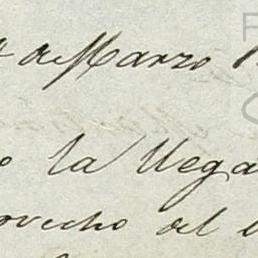 de Marzo
la llega
ovecho del